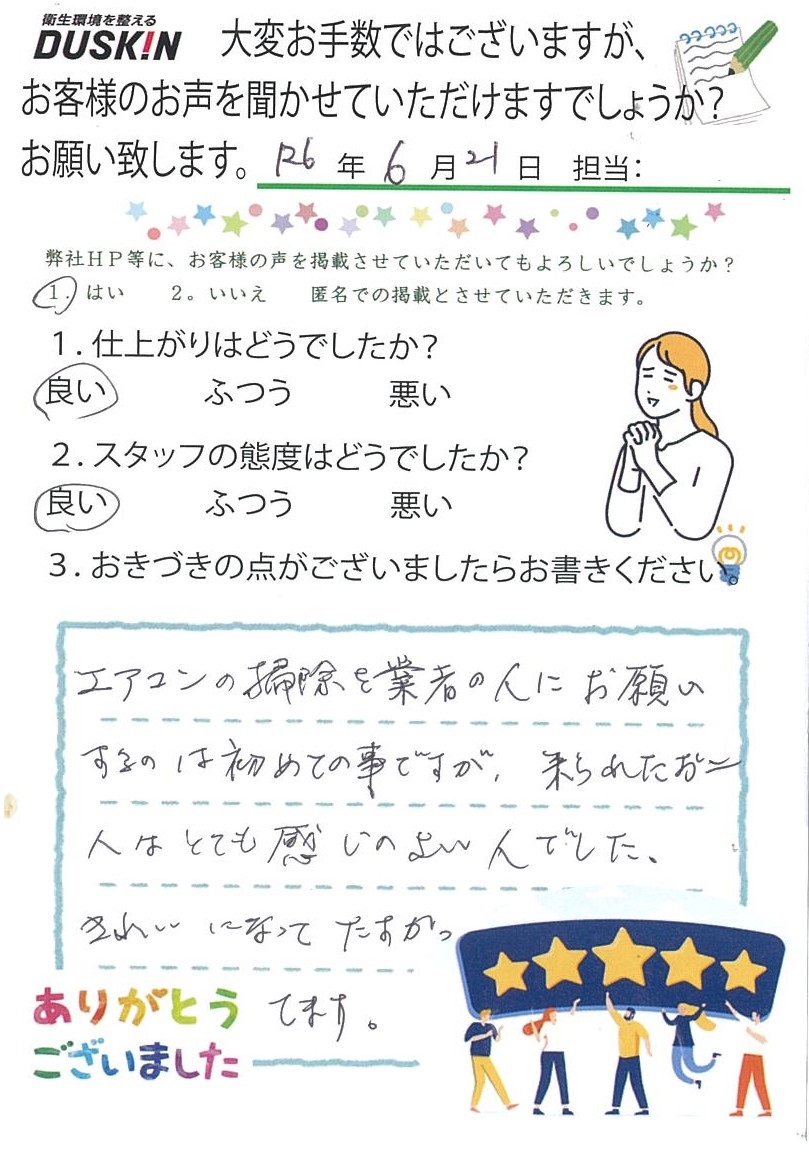 衛生環境を整える
DUSKIN 大変お手数ではございますが、
お客様のお声を聞かせていただけますでしょうか?
お願い致します。 R6 年 6 月 21 日 担当:
弊社HP等に、お客様の声を掲載させていただいてもよろしいでしょうか?
1. はい 2。いいえ 匿名での掲載とさせていただきます。
1.仕上がりはどうでしたか?
良い ふつう 悪い
2.スタッフの態度はどうでしたか?
良い ふつう 悪い
3.おきづきの点がございましたらお書きください。
エアコンの掃除を業者の人にお願い
するのは初めての事ですが、来られたお二
人はとても感じのよい人でした、
きれいになって たすかっ
てます。
ありがとう
ございました